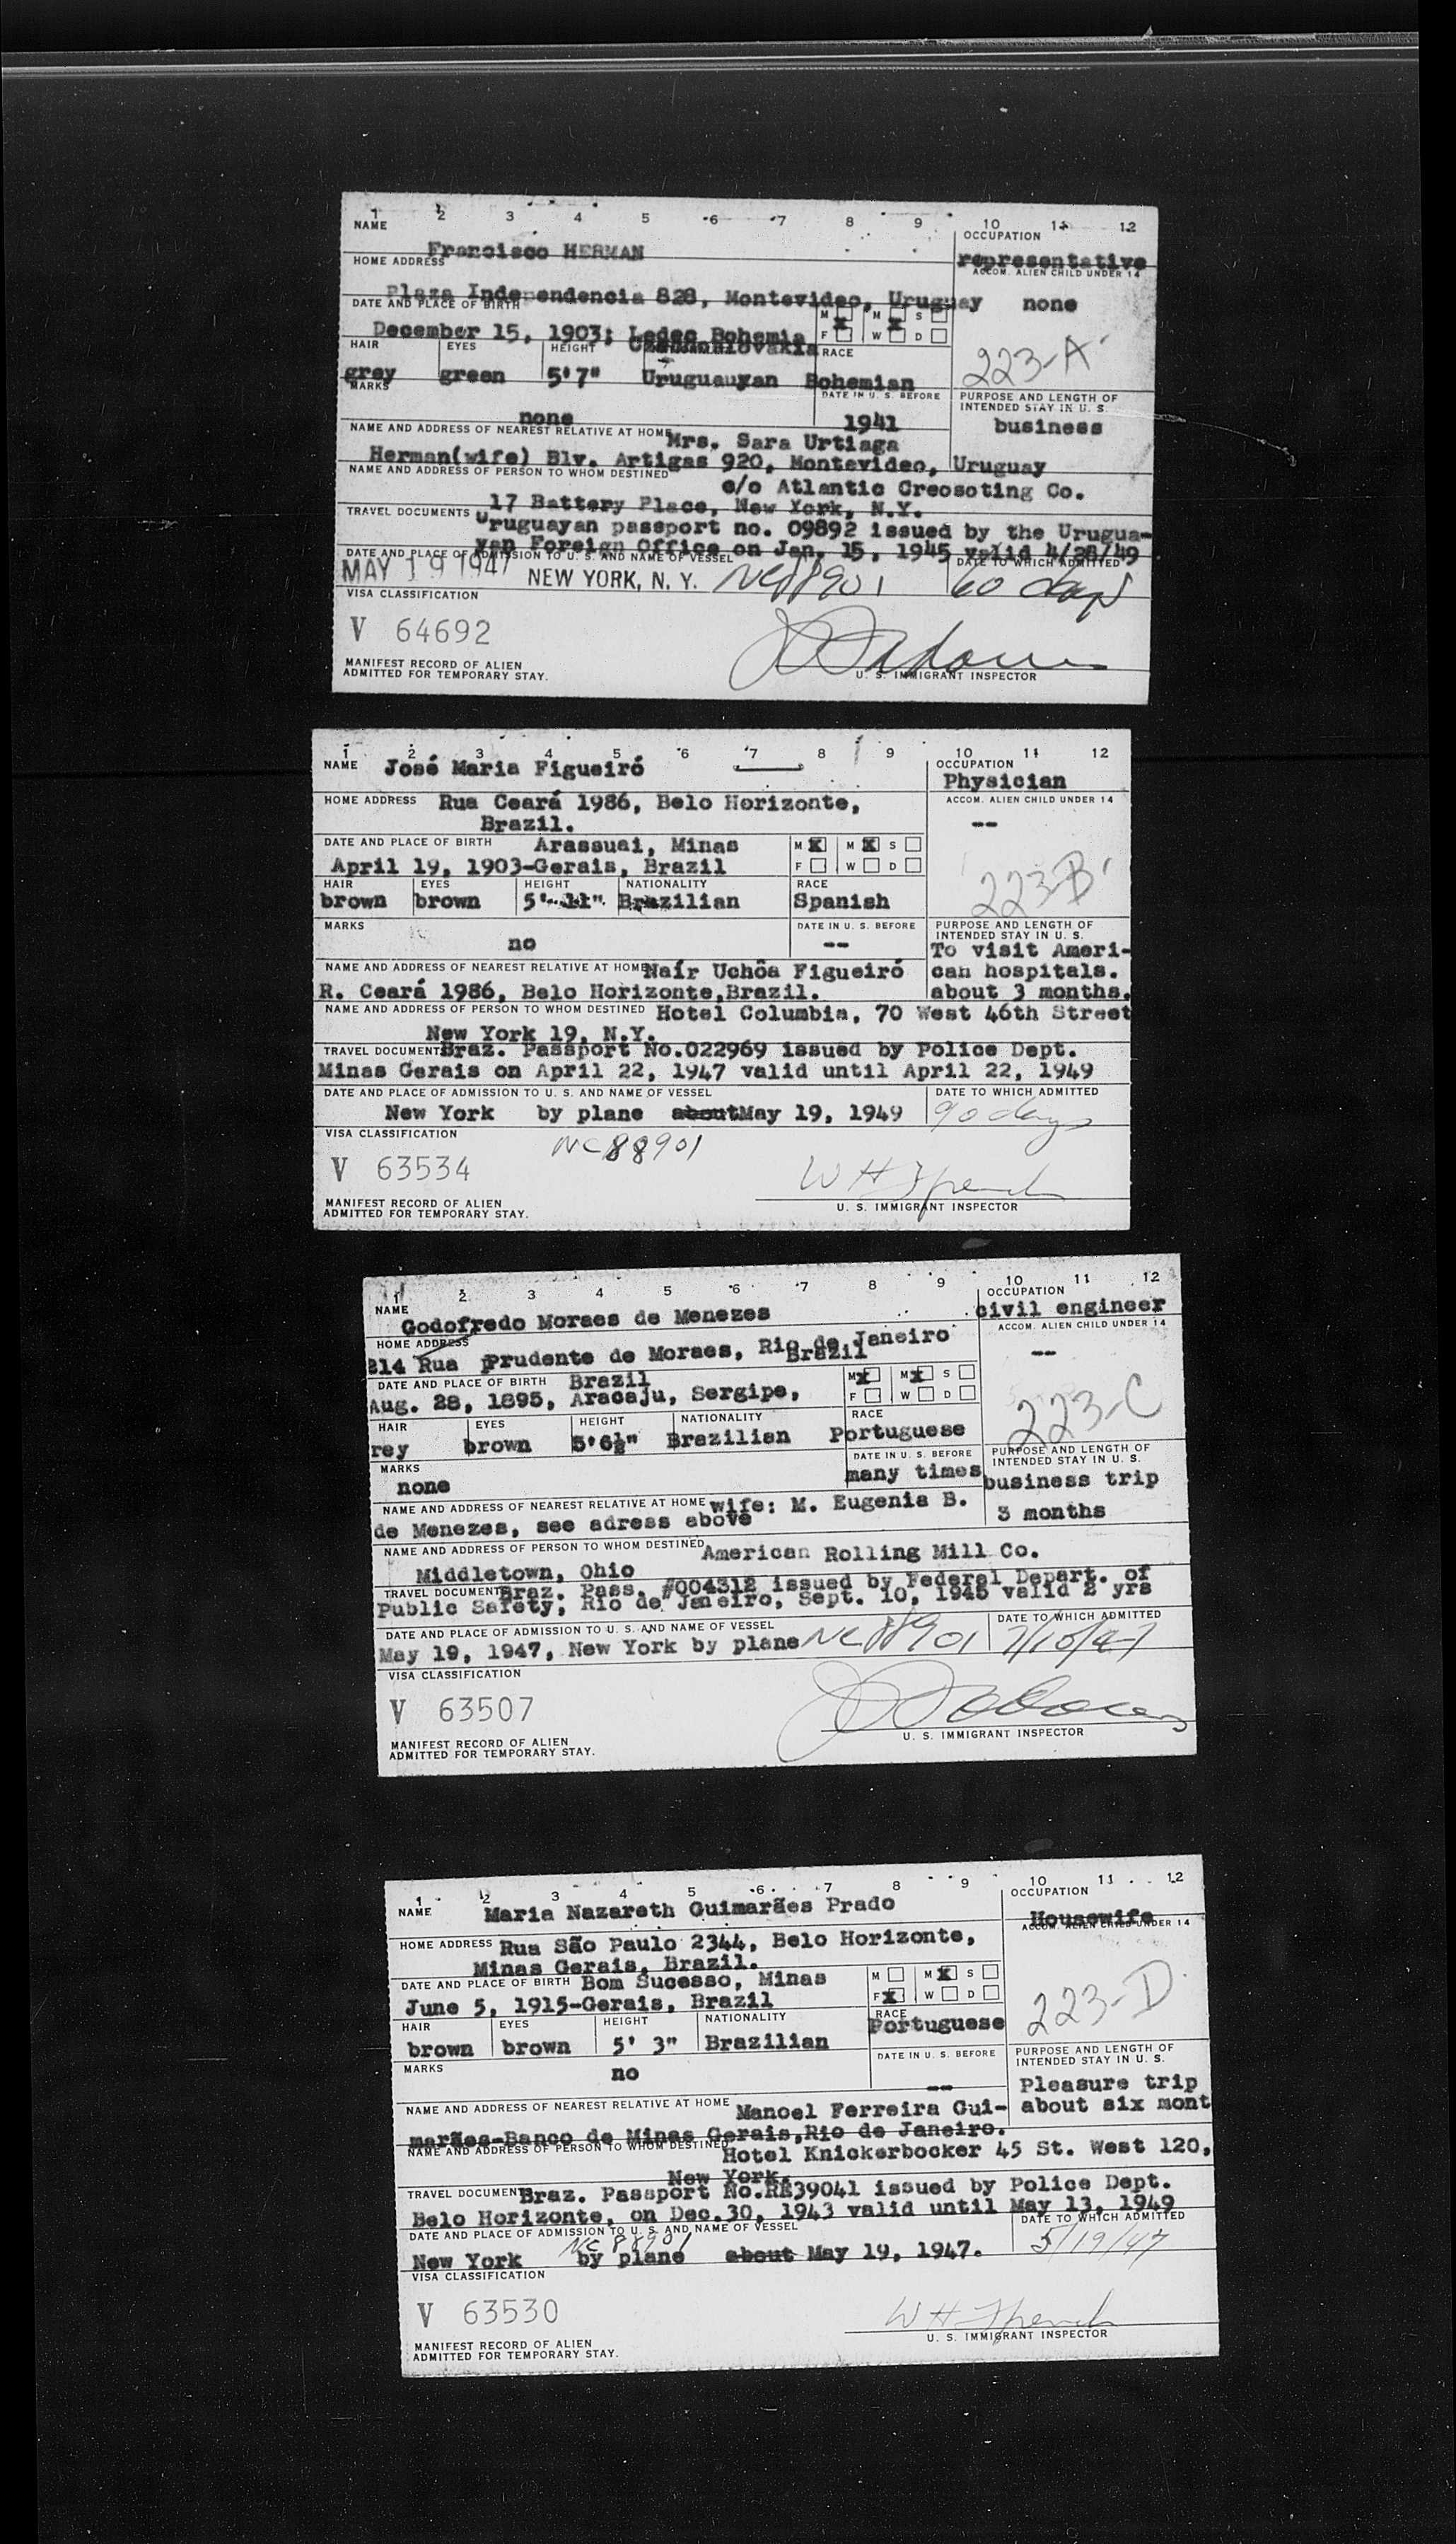 1 2 3 4 5 6 7 8 9 10 11 12
NAME Francisco HERMAN
OCCUPATION
representative
HOME ADDRESS
Plaza Independencia 828, Montevideo, Uruguay
ACCOM. ALIEN CHILD UNDER 14
none
DATE AND PLACE OF BIRTH
December 15, 1903; Ledec Bohemia
Czechoslovakia
M X F M X W S D
223-A
HAIR EYES HEIGHT RACE
grey green 5'7" Uruguauyan Bohemian
MARKS
none
DATE IN U. S. BEFORE
1941
PURPOSE AND LENGTH OF
INTENDED STAY IN U. S.
business
NAME AND ADDRESS OF NEAREST RELATIVE AT HOME Mrs. Sara Urtiaga
Herman(wife) Blv. Artigas 920, Montevideo, Uruguay
NAME AND ADDRESS OF PERSON TO WHOM DESTINED
c/o Atlantic Creosoting Co.
17 Battery Place, New York, N.Y.
TRAVEL DOCUMENTS Uruguayan passport no. 09892 issued by the Urugua-
yan Foreign Office on Jan. 15, 1945 valid 4/28/49
DATE AND PLACE OF ADMISSION TO U. S. AND NAME OF VESSEL
DATE TO WHICH ADMITTED
MAY 19 1947 NEW YORK, N. Y. NC88901 60 days
VISA CLASSIFICATION
V 64692
MANIFEST RECORD OF ALIEN
ADMITTED FOR TEMPORARY STAY.
U. S. IMMIGRANT INSPECTOR
1 2 3 4 5 6 7 8 9 10 11 12
NAME José Maria Figueiró
OCCUPATION
Physician
HOME ADDRESS Rua Ceará 1986, Belo Horizonte,
Brazil.
ACCOM. ALIEN CHILD UNDER 14
--
DATE AND PLACE OF BIRTH Arassuai, Minas
April 19, 1903-Gerais, Brazil
M X F M X W S D
223-B
HAIR EYES HEIGHT NATIONALITY RACE
brown brown 5'-11" Brazilian Spanish
MARKS
no
DATE IN U. S. BEFORE
--
PURPOSE AND LENGTH OF
INTENDED STAY IN U. S.
To visit Ameri-
can hospitals.
about 3 months.
NAME AND ADDRESS OF NEAREST RELATIVE AT HOME Naír Uchôa Figueiró
R. Ceará 1986, Belo Horizonte,Brazil.
NAME AND ADDRESS OF PERSON TO WHOM DESTINED Hotel Columbia, 70 West 46th Street
New York 19, N.Y.
TRAVEL DOCUMENT Braz. Passport No.022969 issued by Police Dept.
Minas Gerais on April 22, 1947 valid until April 22, 1949
DATE AND PLACE OF ADMISSION TO U. S. AND NAME OF VESSEL
DATE TO WHICH ADMITTED
New York by plane about May 19, 1949 90 days
VISA CLASSIFICATION
NC88901
V 63534
W H French
MANIFEST RECORD OF ALIEN
ADMITTED FOR TEMPORARY STAY.
U. S. IMMIGRANT INSPECTOR
1 2 3 4 5 6 7 8 9 10 11 12
NAME
Godofredo Moraes de Menezes
OCCUPATION
civil engineer
HOME ADDRESS
814 Rua Prudente de Moraes, Rio de Janeiro
Brazil
ACCOM. ALIEN CHILD UNDER 14
--
DATE AND PLACE OF BIRTH Brazil
Aug. 28, 1895, Aracaju, Sergipe,
M X F M X W S D
223-C
HAIR EYES HEIGHT NATIONALITY RACE
rey brown 5'6½" Brazilian Portuguese
MARKS
none
DATE IN U. S. BEFORE
many times
PURPOSE AND LENGTH OF
INTENDED STAY IN U. S.
business trip
3 months
NAME AND ADDRESS OF NEAREST RELATIVE AT HOME wife: M. Eugenia B.
de Menezes, see adress above
NAME AND ADDRESS OF PERSON TO WHOM DESTINED American Rolling Mill Co.
Middletown, Ohio
TRAVEL DOCUMENT Braz. Pass. #004312 issued by Federal Depart. of
Public Safety, Rio de Janeiro, Sept. 10, 1945 valid 2 yrs
DATE AND PLACE OF ADMISSION TO U. S. AND NAME OF VESSEL
DATE TO WHICH ADMITTED
May 19, 1947, New York by plane NC88901 7/10/47
VISA CLASSIFICATION
V 63507
MANIFEST RECORD OF ALIEN
ADMITTED FOR TEMPORARY STAY.
U. S. IMMIGRANT INSPECTOR
1 2 3 4 5 6 7 8 9 10 11 12
NAME Maria Nazareth Guimarães Prado
OCCUPATION
Housewife
HOME ADDRESS Rua São Paulo 2344, Belo Horizonte,
Minas Gerais, Brazil.
ACCOM. ALIEN CHILD UNDER 14
DATE AND PLACE OF BIRTH Bom Sucesso, Minas
June 5, 1915-Gerais, Brazil
M F X M X W S D
223-D
HAIR EYES HEIGHT NATIONALITY RACE
brown brown 5' 3" Brazilian Portuguese
MARKS
no
DATE IN U. S. BEFORE
--
PURPOSE AND LENGTH OF
INTENDED STAY IN U. S.
Pleasure trip
about six mont
NAME AND ADDRESS OF NEAREST RELATIVE AT HOME Manoel Ferreira Gui-
marães-Banco de Minas Gerais,Rio de Janeiro.
NAME AND ADDRESS OF PERSON TO WHOM DESTINED
Hotel Knickerbocker 45 St. West 120,
New York.
TRAVEL DOCUMENT Braz. Passport No.RE39041 issued by Police Dept.
Belo Horizonte, on Dec.30, 1943 valid until May 13, 1949
DATE AND PLACE OF ADMISSION TO U. S. AND NAME OF VESSEL
DATE TO WHICH ADMITTED
NC 88901
New York by plane about May 19, 1947. 5/19/47
VISA CLASSIFICATION
V 63530
W H French
MANIFEST RECORD OF ALIEN
ADMITTED FOR TEMPORARY STAY.
U. S. IMMIGRANT INSPECTOR